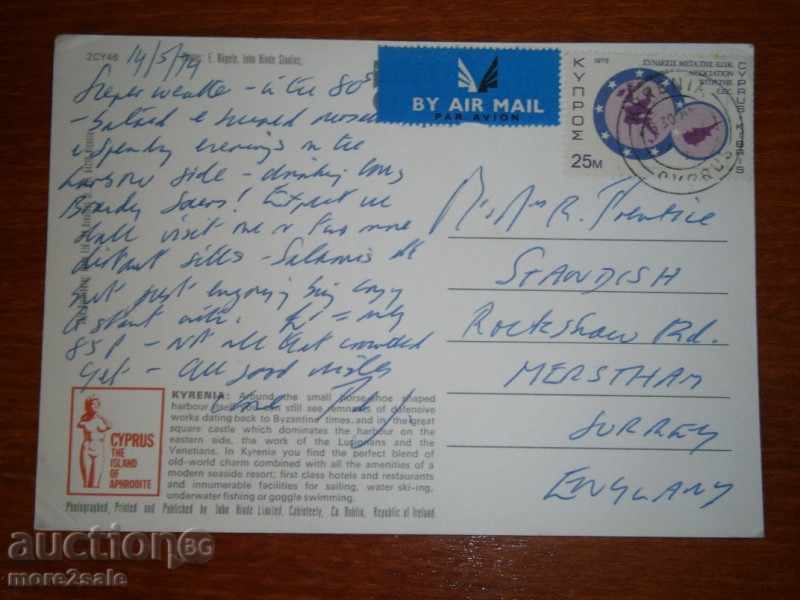 2CY46
E. Nägele, John Hinde Studios.
14/5/74
weather - in the 80s
evenings in the
side - drinking long
Brandy Sours! Expect we
shall visit one or two more
distant sites - Salamis etc
but just enjoying being lazy
to start with. £1 = only
85p - Not all that crowded
yet - All good wishes
BY AIR MAIL
PAR AVION
ΚΥΠΡΟΣ
1973
ΣΥΝΔΕΣΙΣ ΜΕΤΑ ΤΗΣ ΕΟΚ
ASSOCIATION
EEC
CYPRUS
KIBRIS
25M
CYPRUS
Mr. & Mrs R. Prentice
STANDISH
Rockshaw Rd.
MERSTHAM
SURREY
ENGLAND
CYPRUS
THE
ISLAND
OF
APHRODITE
KYRENIA: Around the small horse-shoe shaped
harbour can still see remnants of defensive
works dating back to Byzantine times, and in the great
square castle which dominates the harbour on the
eastern side, the work of the Lusignans and the
Venetians. In Kyrenia you find the perfect blend of
old-world charm combined with all the amenities of a
modern seaside resort; first class hotels and restaurants
and innumerable facilities for sailing, water ski-ing,
underwater fishing or goggle swimming.
Photographed, Printed and Published by John Hinde Limited, Cabinteely, Co. Dublin, Republic of Ireland
auction BG
more2sale